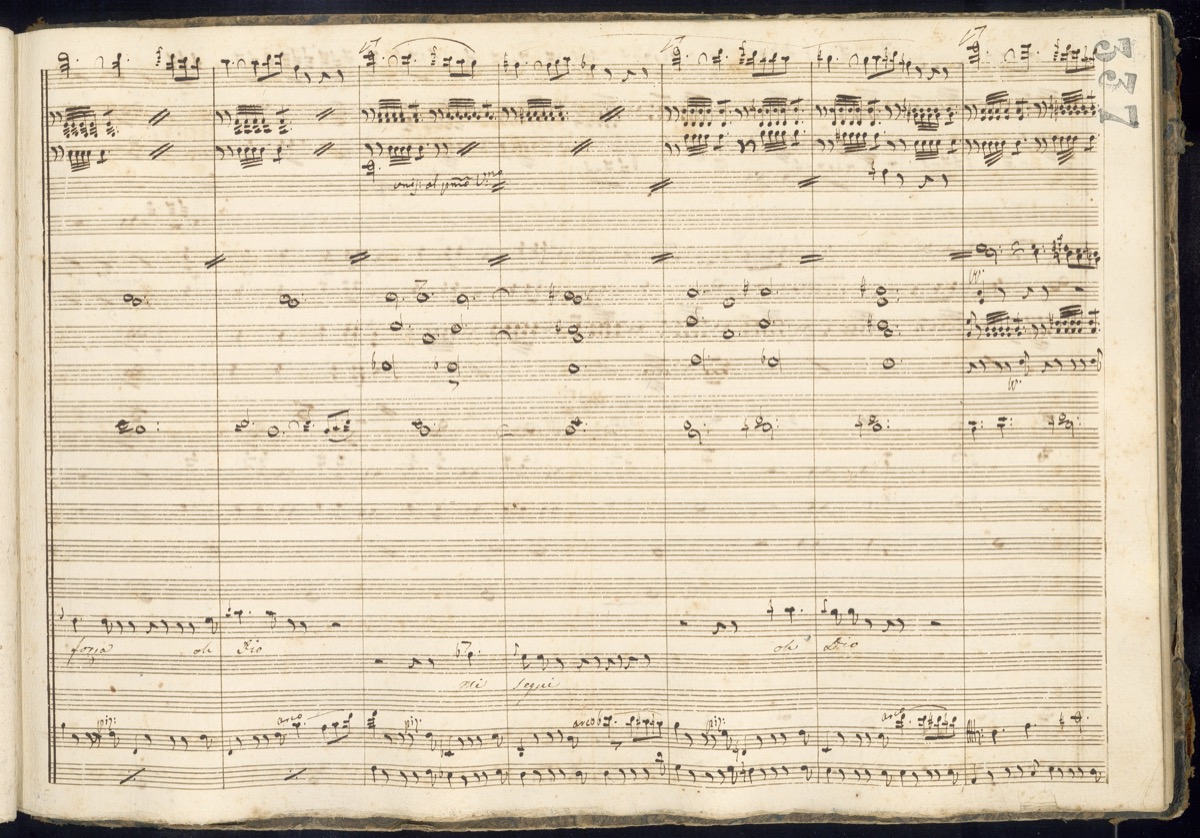 337
unis: al primo V:no
forza oh Dio
oh Dio
mi segui
piz: arco piz: arco piz: arco